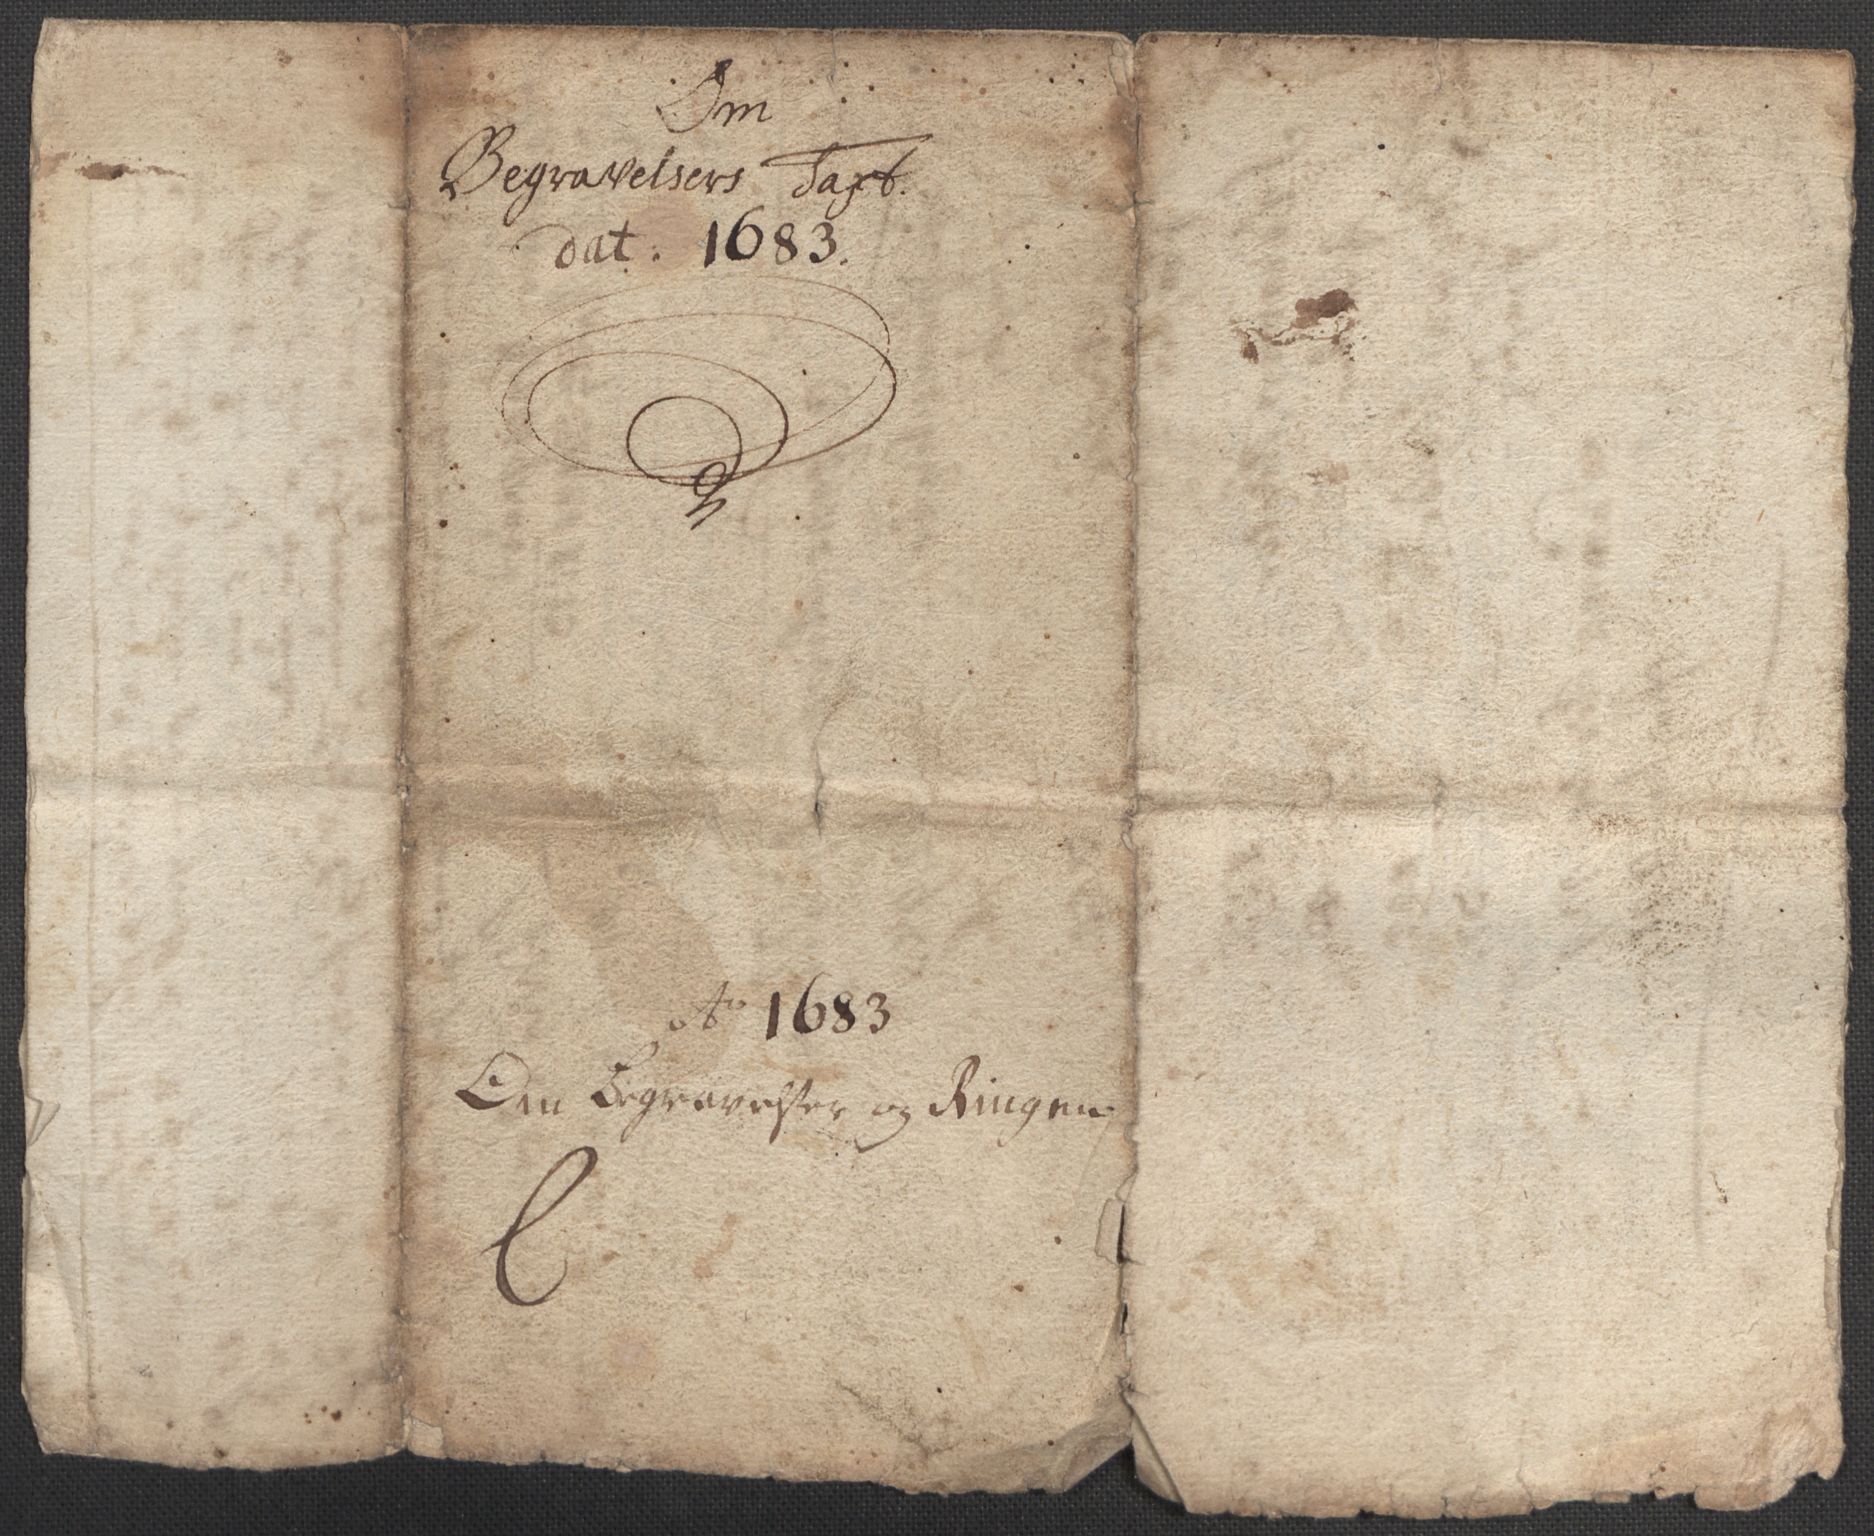 Om
Begravelsers Taxt.
dat: 1683.
Ao 1683
Om Begravelser og Ringen